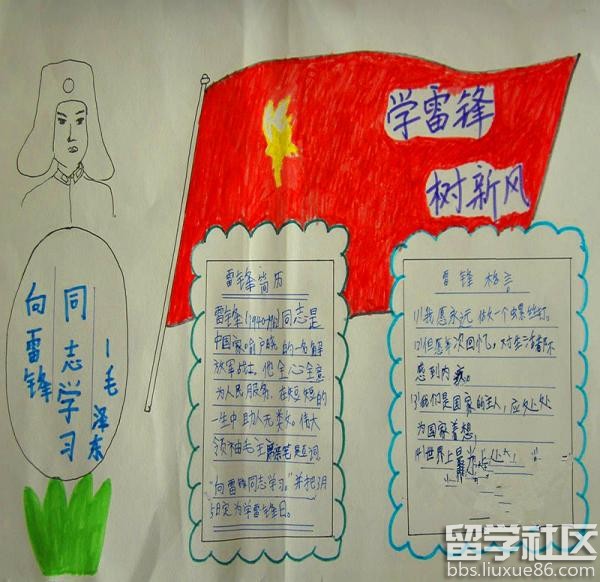 学雷锋
树新风
向雷锋
同志学习
—毛泽东
雷锋简历
雷锋(1940-1962)同志是
中国家喻户晓的一名解
放军战士。他全心全意
为人民服务,在短短的
一生中助人无数。伟大
领袖毛主席亲笔题词
"向雷锋同志学习。"并把3月
5日定为学雷锋日。
雷锋格言
(1)我愿永远做一个螺丝钉。
(2)但愿每次回忆,对生活都不
感到内疚。
(3)我们是国家的主人,应处处
为国家着想,
(4)世界上最
留学社区
bbs.liuxue86.com